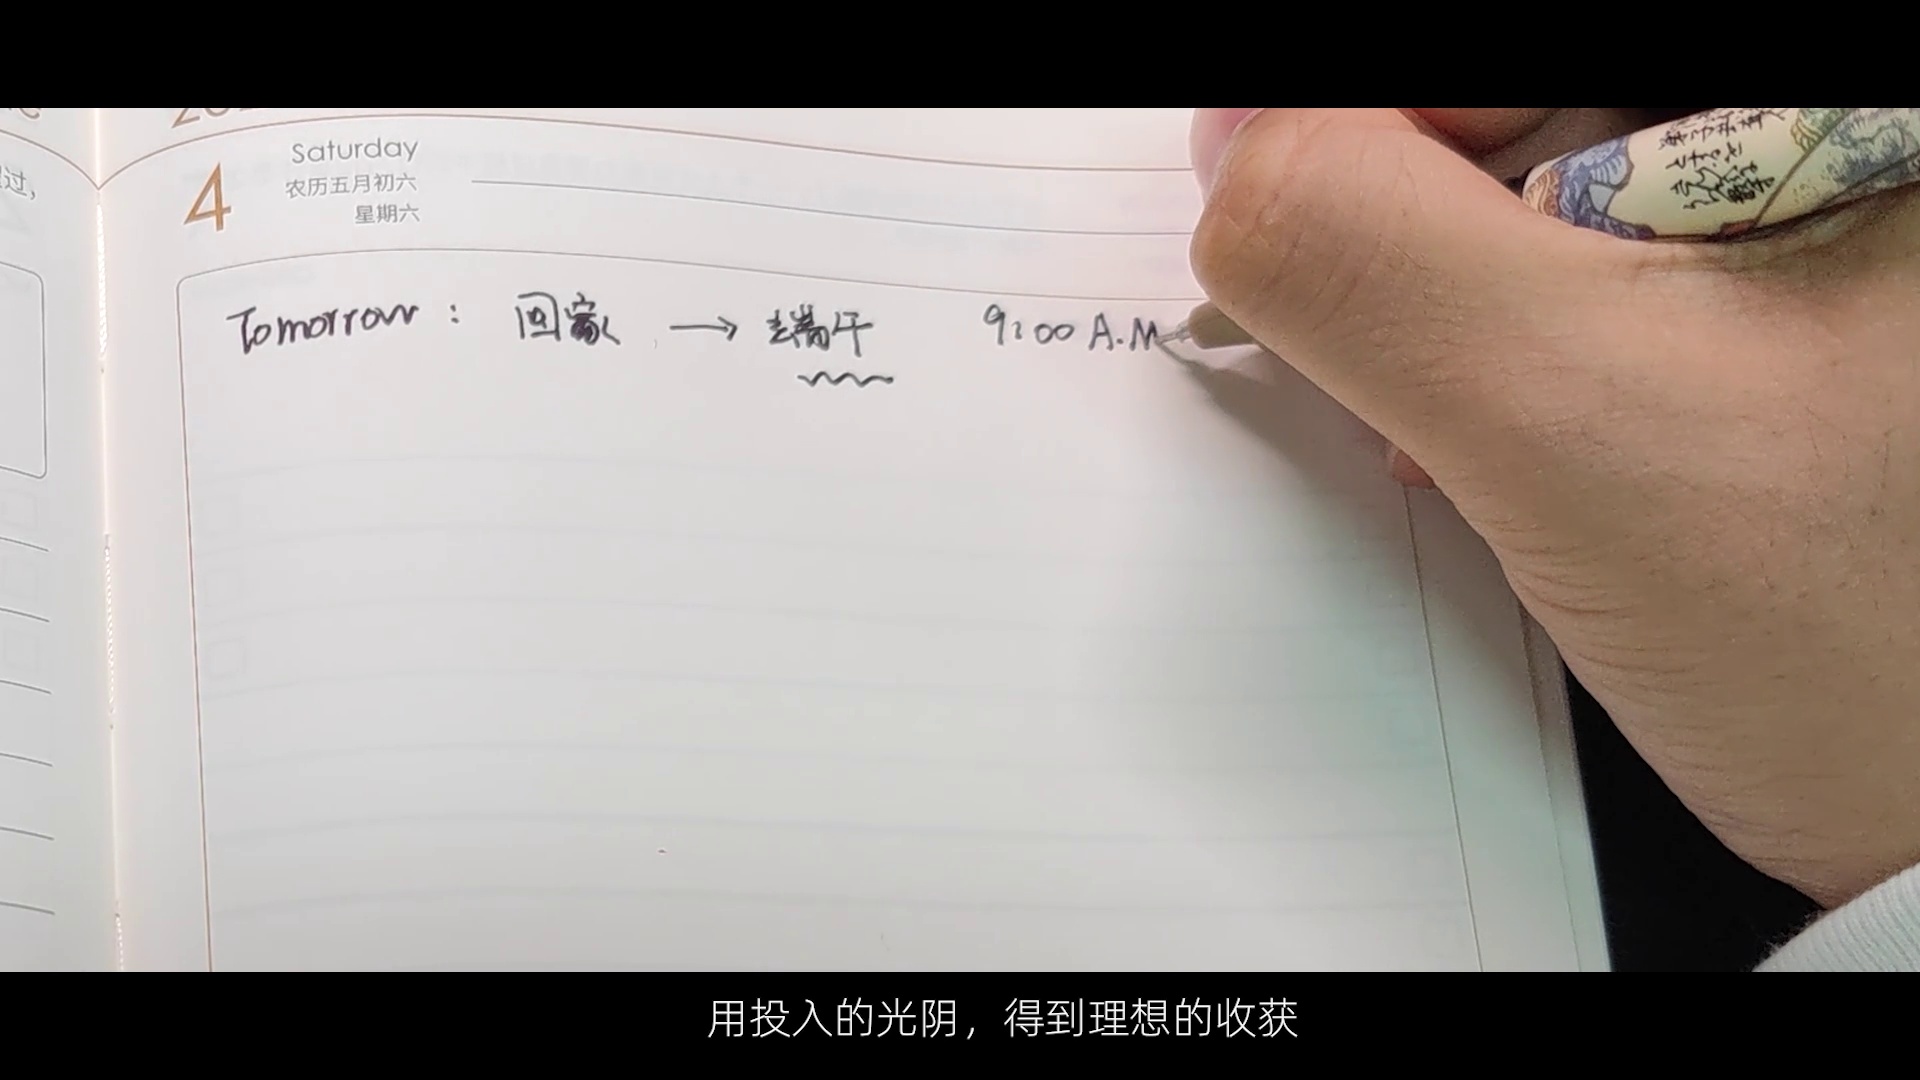 4
Saturday
农历五月初六
星期六
过，
Tomorrow： 回家 → 端午 9:00 A.M
用投入的光阴，得到理想的收获